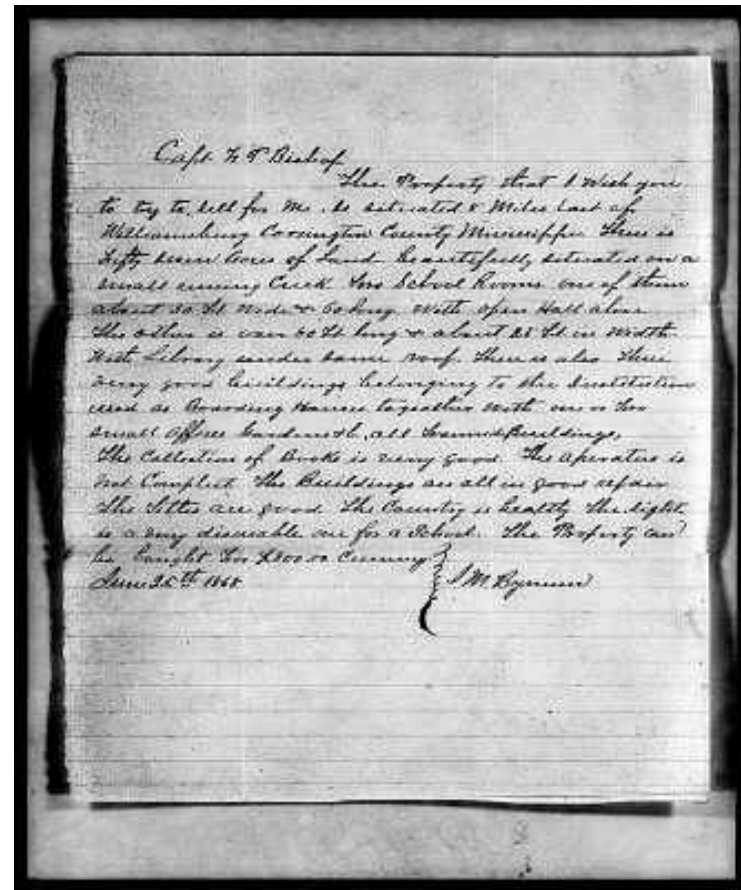 Capt
Bishop
The Property that I Wish you
to try to sell for Me. Is situated 8 Miles East of
Williamsburg Covington County Mississippi There is
Fifty Seven Acres of Land beautifully situated on a
small running Creek Two School Rooms one of them
about 30 ft Wide & 60 long With open Hall
The other is 60 ft long & about 25 ft in Width
With Library under same roof. There is also Three
very good buildings belonging to the Institution
used as Boarding Houses together With one or Two
small Offices Gardens &c, all Buildings,
The Collection of Books is very good The aperatus is
Not Compleet The Buildings are all in good repair
The Titles are good The Country is healthy The
is a very one for a School. The Property can
be bought for Currency
June 25th 1868
Bynum